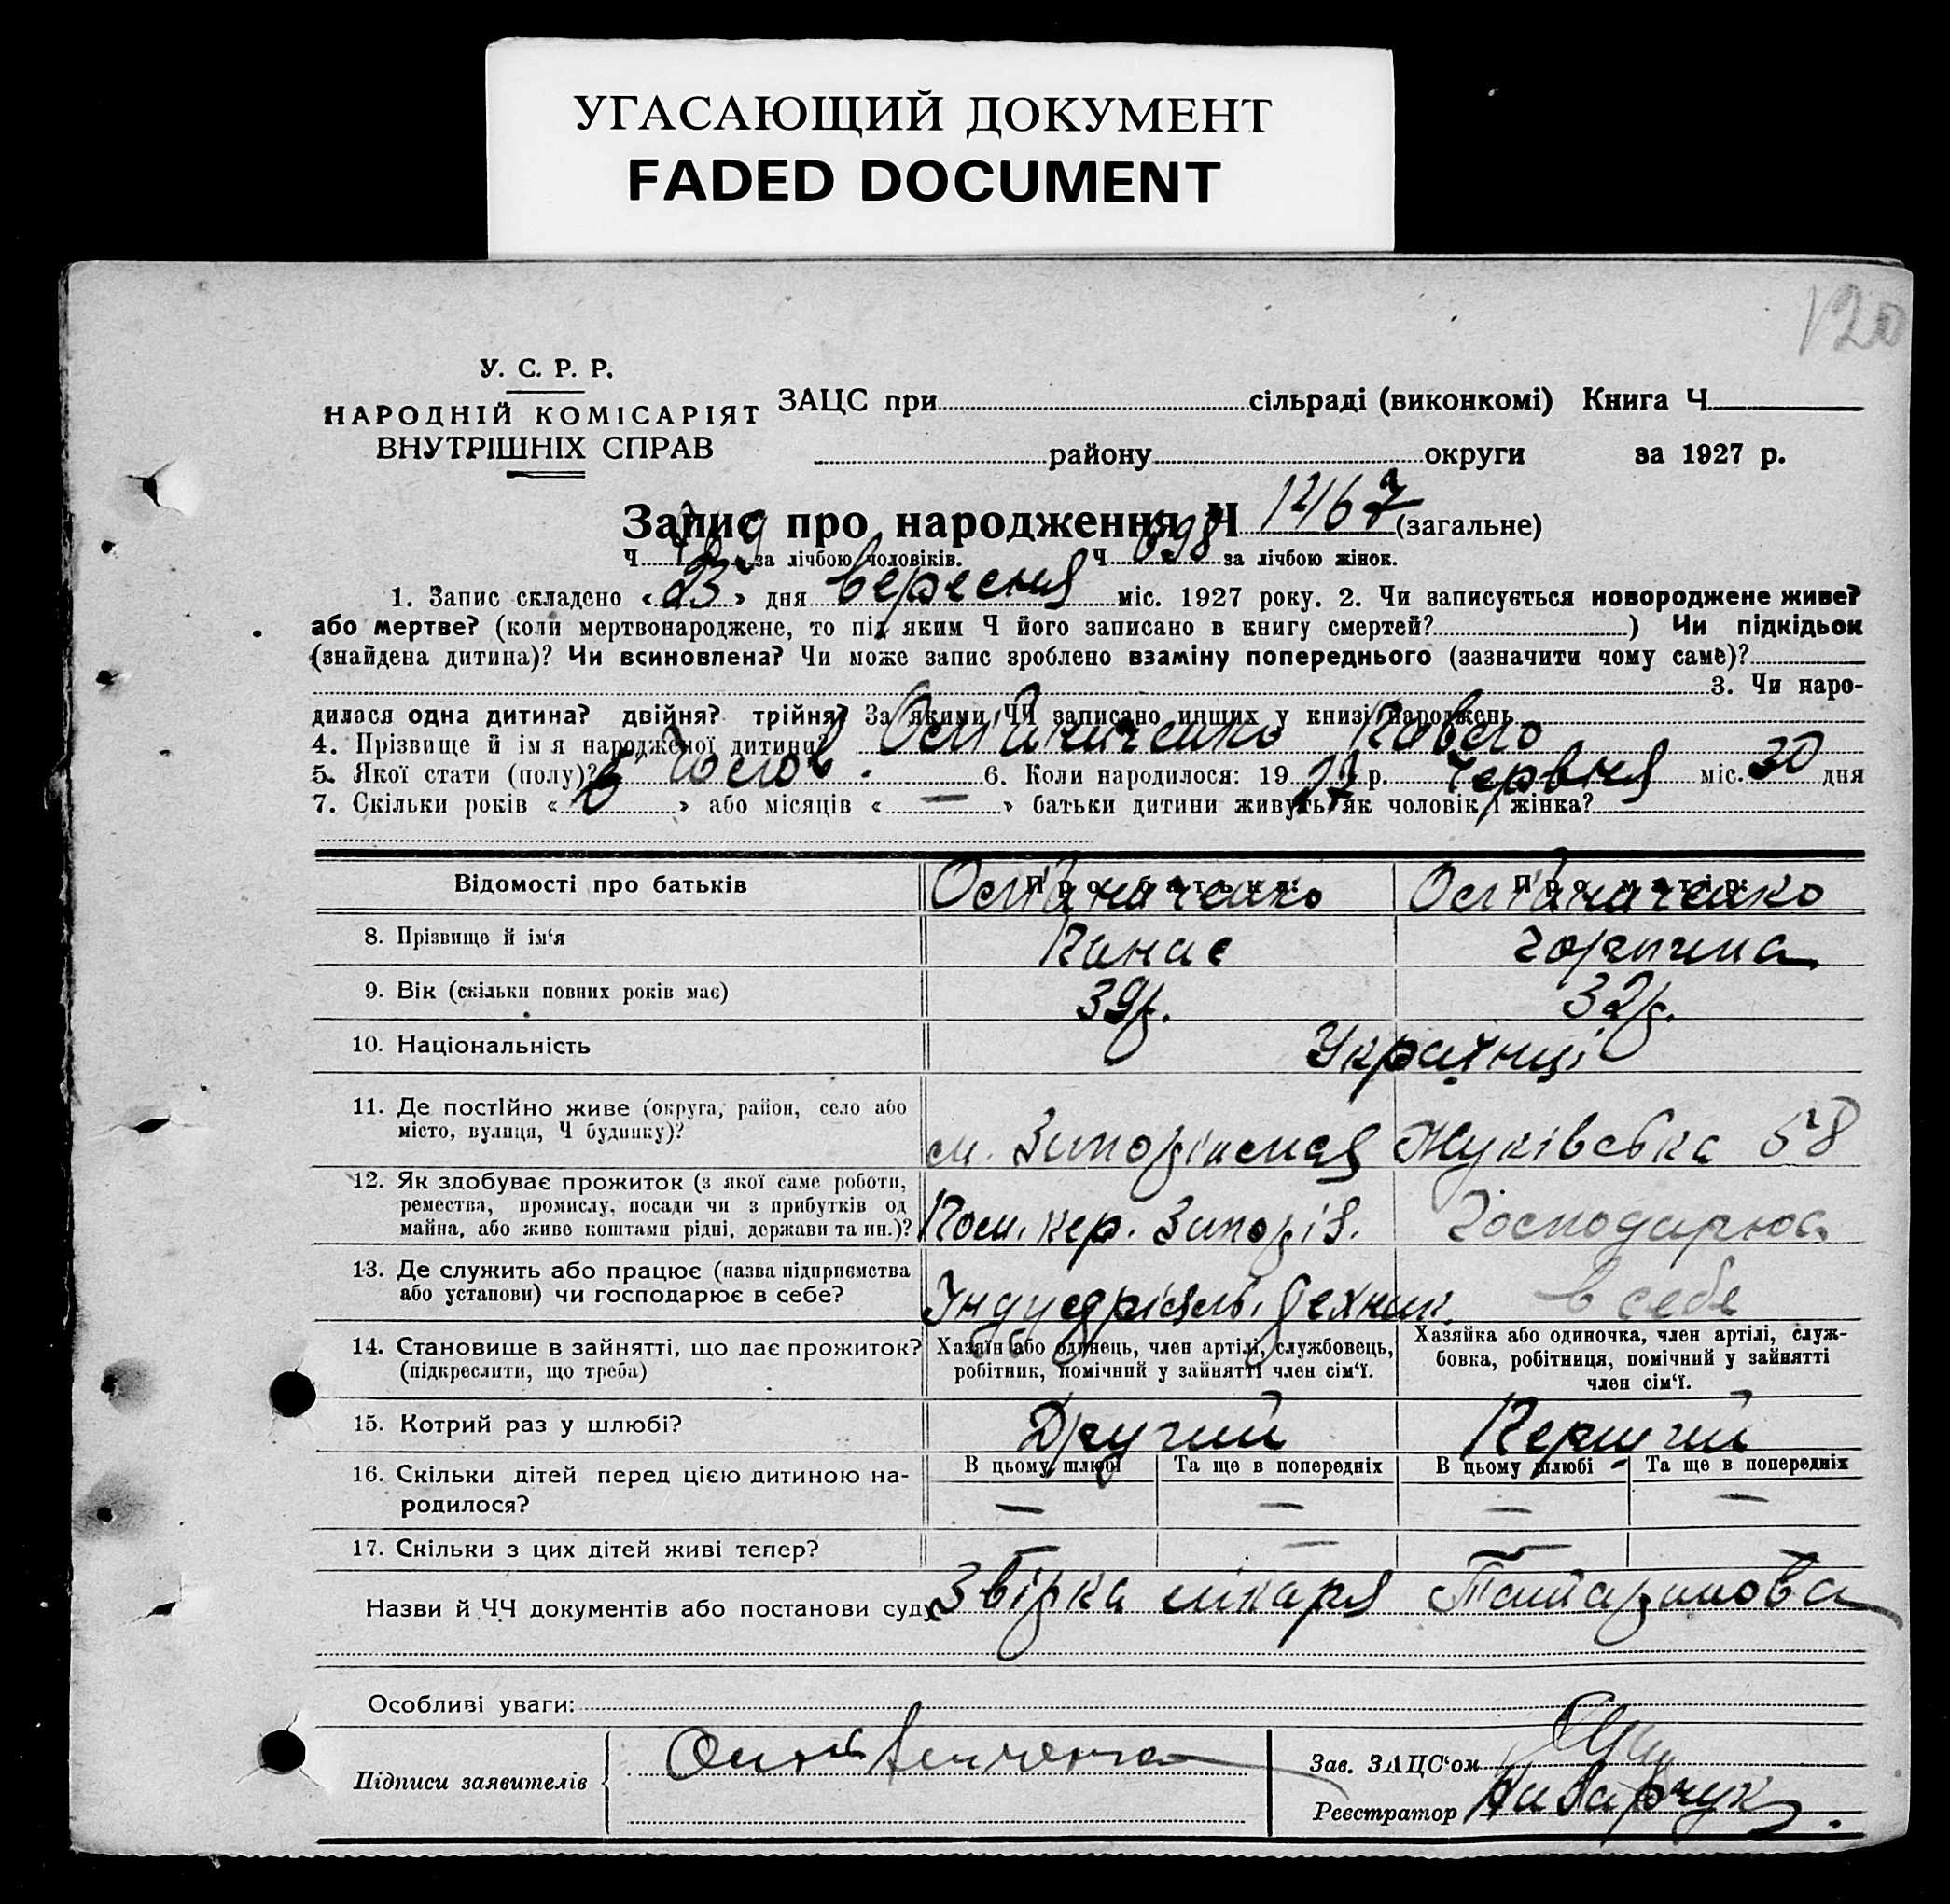 УГАСАЮЩИЙ ДОКУМЕНТ
FADED DOCUMENT
120
У. С. Р. Р.
НАРОДНІЙ КОМІСАРІЯТ
ВНУТРІШНІХ СПРАВ
ЗАЦС при сільраді (виконкомі) Книга Ч
району округи за 1927 р.
Запис про народження Ч 1467 (загальне)
Ч за лічбою чоловіків. Ч 698 за лічбою жінок.
1. Запис складено « 23 » дня вересня міс. 1927 року. 2. Чи записується новороджене живе?
або мертве? (коли мертвонароджене, то під яким Ч його записано в книгу смертей? ) Чи підкідьок
(знайдена дитина)? Чи всиновлена? Чи може запис зроблено взаміну попереднього (зазначити чому саме)?
3. Чи наро-
дилася одна дитина? двійня? трійня? За якими ЧЧ записано инших у книзі народжень
4. Прізвище й ім я народженої дитини? Остапиченко Павело
5. Якої стати (полу)? Чолов. 6. Коли народилося: 19 27 р. червня міс. 30 дня
7. Скільки років « » або місяців « — » батьки дитини живуть як чоловік і жінка?
Відомості про батьків Про батька: Остапиченко Про матір: Остапиченко
8. Прізвище й ім‘я Панас Горпина
9. Вік (скільки повних років має) 39 р. 32 р.
10. Національність Українці
11. Де постійно живе (округа, район, село або
місто, вулиця, Ч будинку)? м. Запоріжжя Жуківська 58
12. Як здобуває прожиток (з якої саме роботи,
ремества, промислу, посади чи з прибутків од
майна, або живе коштами рідні, держави та ин.)? Пом. кер. Запоріз. Господарює
13. Де служить або працює (назва підприємства
або установи) чи господарює в себе? Індустріяль. технік. в себе
14. Становище в зайнятті, що дає прожиток?
(підкреслити, що треба)
Хазяїн або одинець, член артілі, службовець,
робітник, помічний у зайнятті член сім‘ї.
Хазяйка або одиночка, член артілі, служ-
бовка, робітниця, помічний у зайнятті
член сім‘ї.
15. Котрий раз у шлюбі? Другий Перший
16. Скільки дітей перед цією дитиною на-
родилося?
В цьому шлюбі Та ще в попередніх В цьому шлюбі Та ще в попередніх
— — — —
17. Скільки з цих дітей живі тепер? — — — —
Назви й ЧЧ документів або постанови суду Звірка лікаря
Особливі уваги:
Підписи заявителів
Зав. ЗАЦС‘ом
Реєстратор